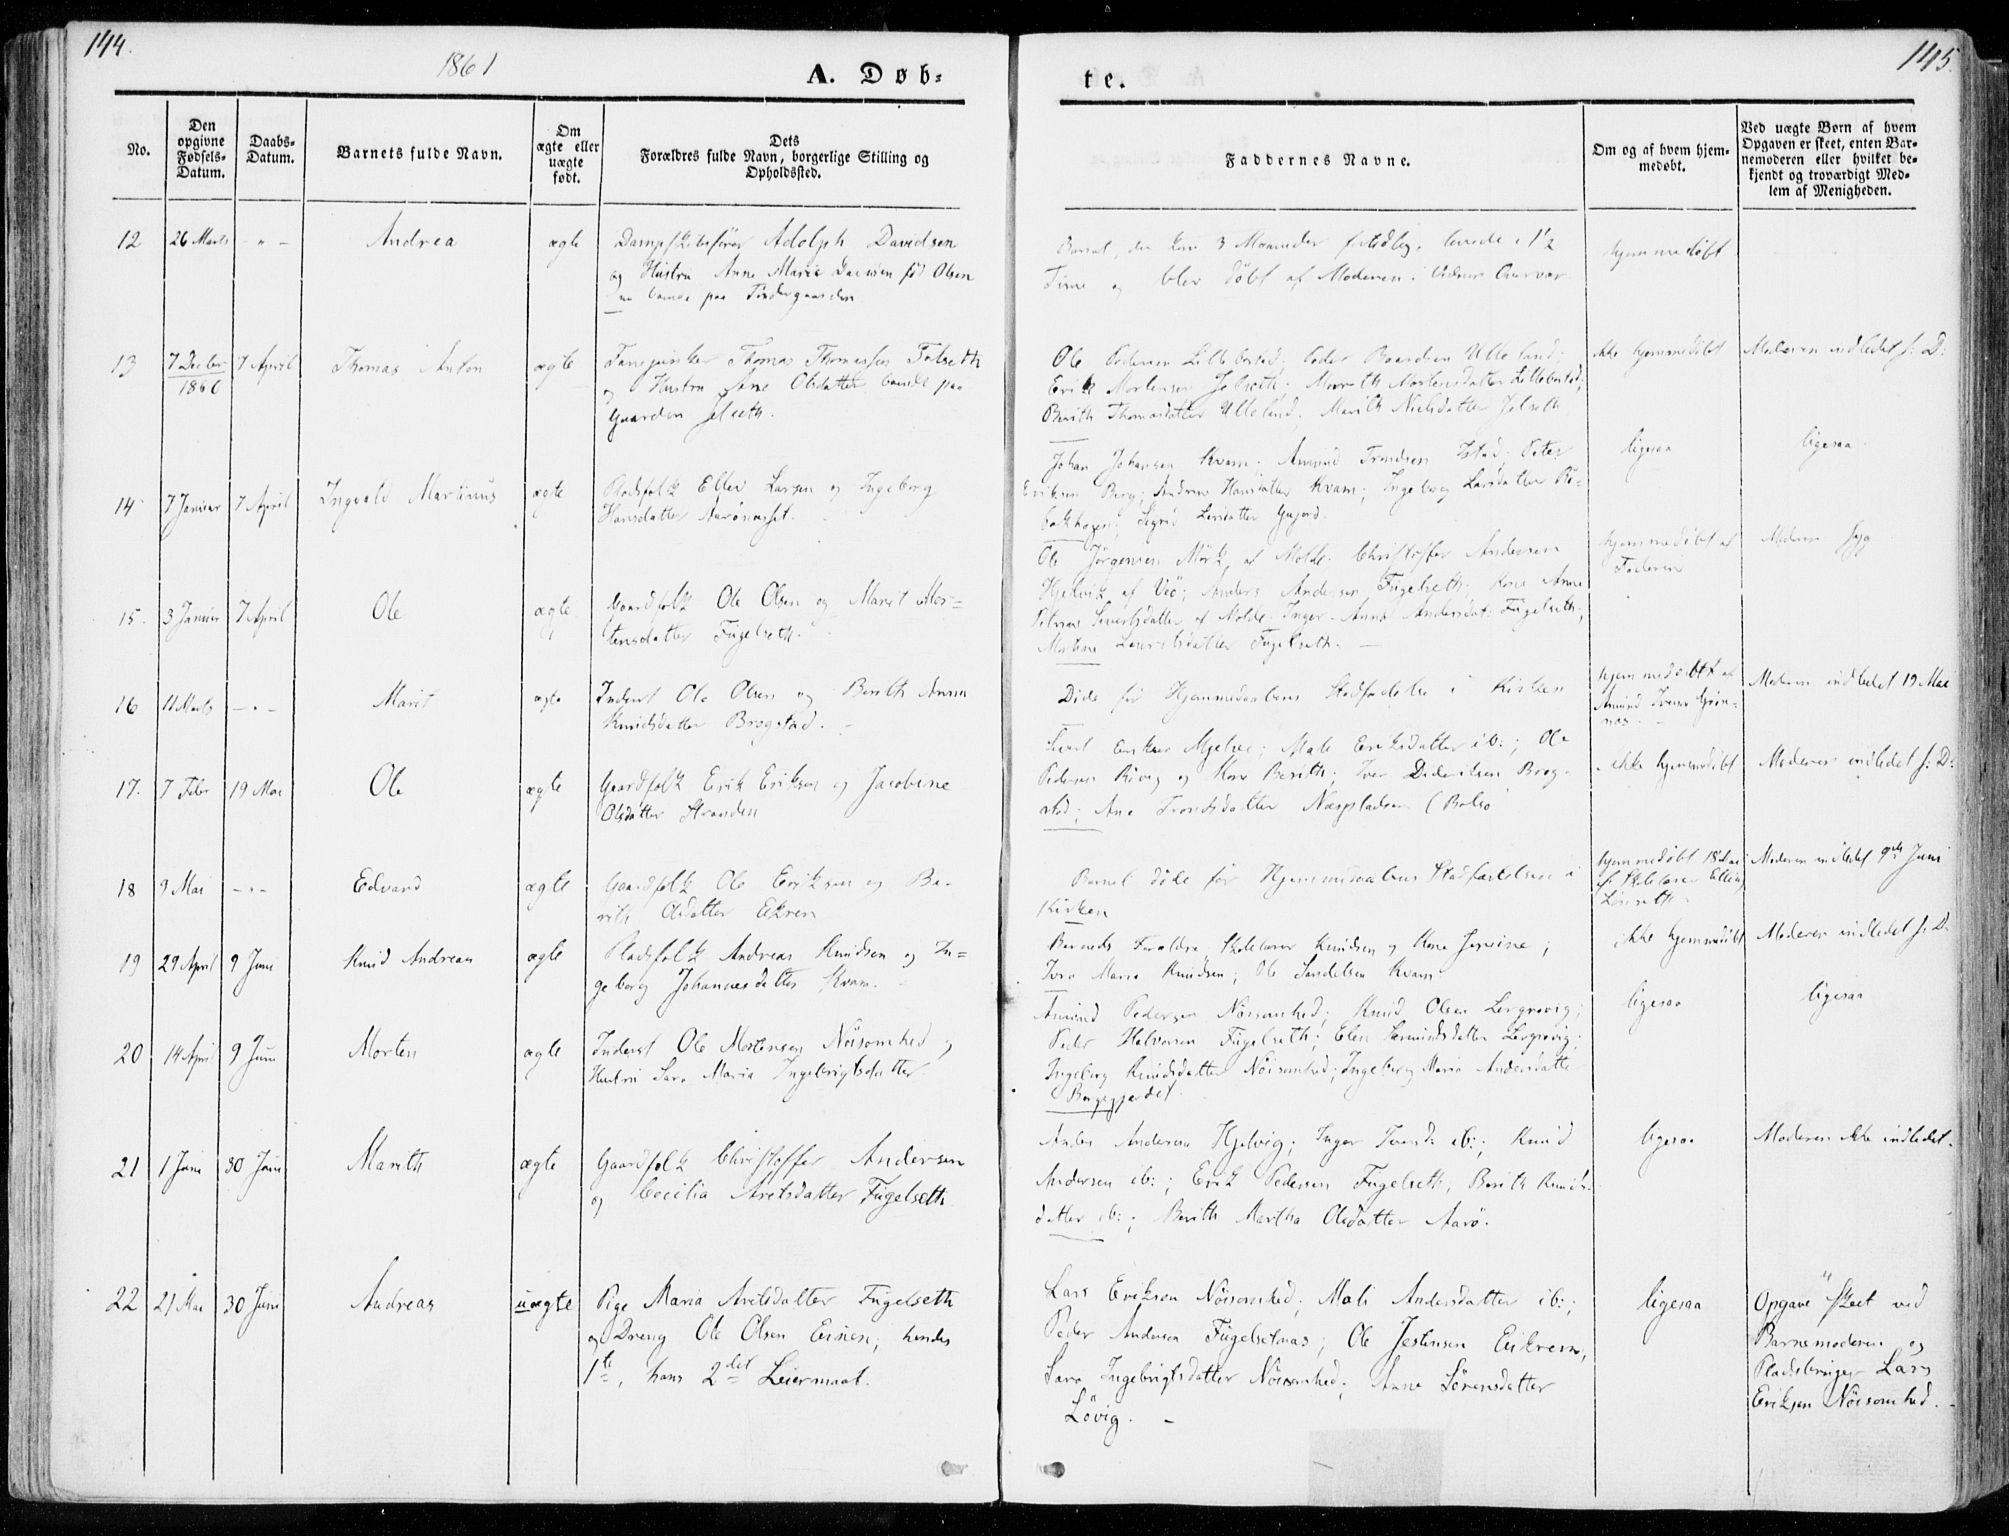 144.
1861
A. Døb-
te.
145.
No.
Den
opgivne
Fødsels-
Datum.
Daabs-
Datum.
Barnets fulde Navn.
Om
ægte eller
uægte
født.
Dets
Forældres fulde Navn, borgerlige Stilling og
Opholdssted.
Faddernes Navne.
Om og af hvem hjem-
medøbt.
Ved uægte Børn af hvem
Opgaven er skeet, enten Bar-
nemoderen eller hvilket be-
kjendt og troværdigt Med-
lem af Menigheden.
12
26 Marts
- " -
Andrea
ægte
Adolph Davidsen
og Hustru Anne Marie Davidsen fød Olsen
boende paa
Barnet, der kom 3 Maaneder for tidlig, levede i 1/2
Time og blev døbt af Moderen i
hjemmedøbt
13
7 Decbr
1860
7 April
Thomas Anton
ægte
Thomas Thomassen
og Hustru Ane Olsdatter boende paa
Gaarden Jelseth.
Ole Pedersen Lillebostad; Peder Ulleland;
Erik Mortensen Jelseth; Mareth Mortensdatter Lillebostad;
Berith Thomasdatter Ulleland; Marith Nielsdatter Jelseth
ikke hjemmedøbt
Moderen indledet s: D:
14
7 Januar
7 April
Ingvald Martinus
ægte
Pladsfolk Ellev Larsen og Ingeborg
Hansdatter
Johan Johansen Kvam; Amund Trondsen Istad; Peter
Eriksen Berg; Hansdatter Kvam; Ingeborg Larsdatter
Sigrid
ligesaa
ligesaa
15.
3 Januar
7 April
Ole
ægte
Gaardfolk Ole Olsen og Marit Mor-
tensdatter Fugelseth.
Ole Jørgensen Mørk af Molde; Christoffer Andersen
Hjelvik af Veø; Anders Andersen Fugelseth; Kone Anne
Sivertsdatter af Molde; Inger Anna Andersdat: Fugelseth;
Fugelseth.
hjemmedøbt af
Faderen
Moderen syg
16
11 Marts
- " -
Marit
ægte
Inderst Ole Olsen og Berith Anna
Knudsdatter Brogstad.
Døde før Hjemmedaabens Stadfæstelse i Kirken
hjemmedøbt af
Amund Iversen
Moderen indledet 19 Mai
17.
7 Febr
19 Mai
Ole
ægte
Gaardfolk Erik Eriksen og Jacobine
Olsdatter Stranden
Sivert Eriksen Mjelve; Mali Eriksdatter ib:; Ole
Pedersen Røvig og Kone Berith; Iver Didriksen Brog-
stad; Ane Trondsdatter Næspladsen (Bolsø
ikke hjemmedøbt
Moderen indledet s: D:
18
9 Mai
- " -
Edvard
ægte
Gaardfolk Ole Eriksen og Be-
rith Olsdatter Eikrem
Barnet døde før Hjemmedaabens Stadfæstelse i
Kirken
hjemmedøbt 18 Mai
af Skolelærer Elling
Moderen indledet 9de Juni
19
29 April
9 Juni
Knud Andreas
ægte
Pladsfolk Andreas Knudsen og In-
geborg Johannesdatter Kvam.
Barnets Forældre; Skolelærer Knudsen og Kone
Maria Knudsen; Ole Sandelsen Kvam
ikke hjemmedøbt
Moderen indledet s: D:
20
14 April
9 Juni
Morten
ægte
Inderst Ole Mortensen Nøisomhed og
Hustru Sara Maria Ingebrigtsdatter
Amund Pedersen Nøisomhed; Knud Olsen Lergrovig;
Peder Halvorsen Fugelseth; Elen Lergrovig;
Ingeborg Knudsdatter Nøisomhed; Ingeborg Maria Andersdatter
Borgegjerdet
ligesaa
ligesaa
21
1 Juni
30 Juni
Marith
ægte
Gaardfolk Christoffer Andersen
og Cecilia Aretsdatter Fugelseth
Anders Andersen Hjelvig; Inger Iversd: ib:; Knud
Andersen ib:; Erik Pedersen Fugelseth, Berith Knuds-
datter ib:; Berith Martha Olsdatter Aarø.
ligesaa
Moderen ikke indledet.
22
21 Mai
30 Juni
Andreas
uægte
Pige Maria Aretsdatter Fugelseth
og Dreng Ole Olsen; hendes
1te, hans 2det Leiermaal.
Lars Eriksen Nøisomhed; Mali Andersdatter ib:;
Peder Andersen Fugelsetnæs; Ole Jestensen Eikrem;
Sara Ingebrigtsdatter Nøisomhed; Anne Sørensdatter
Løvig. -
ligesaa
Opgave skeet ved
Barnemoderen og
Pladsbruger Lars
Eriksen Nøisomhed.